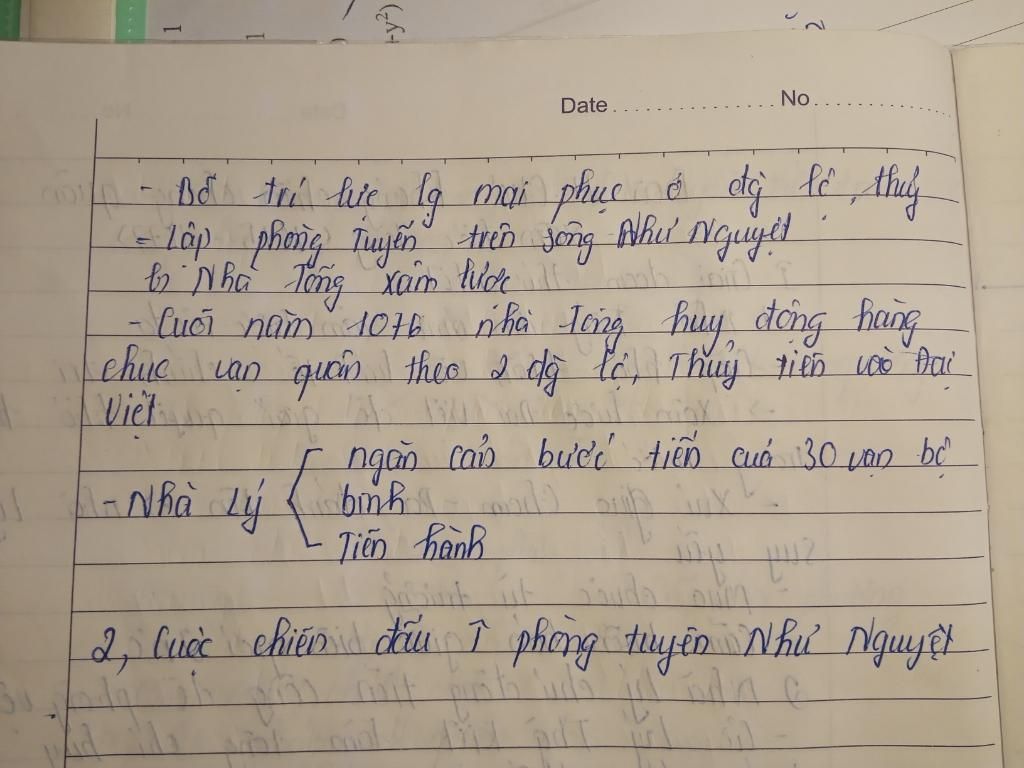 Date............... No...............
- Bố trí lực lg mai phục ở đg bộ, thuỷ
- Lập phòng tuyến trên sông Như Nguyệt
b, Nhà Tống xâm lược
- Cuối năm 1076 nhà Tống huy động hàng
chục vạn quân theo 2 đg bộ, Thuỷ tiến vào Đại
Việt
- Nhà Lý
ngăn cản bước tiến của 30 vạn bộ
binh
Tiến hành
2, Cuộc chiến đấu Ỉ phòng tuyến Như Nguyệt